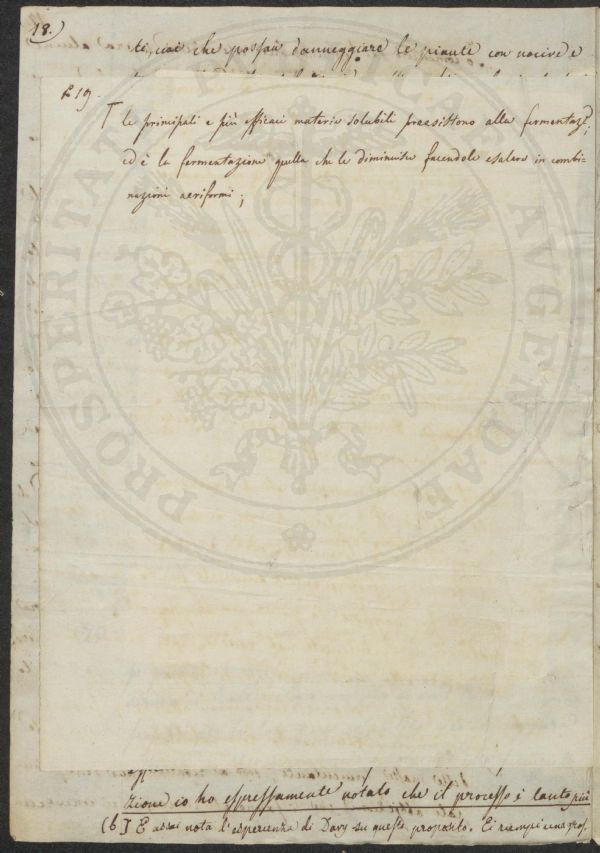 18.)
te, cioè che possan danneggiare le piante con nocive e
p. 19.
T le principali e più efficaci materie solubili preesistono alla fermentaz.e;
ed è la fermentazione quella che le diminuisce facendole esalare in combi-
nazioni aeriformi;
PROSPERITATI PUBLICAE AVGENDAE
zione io ho espressamente notato che il processo è tanto più
(b) È assai nota l'esperienza di Davy su questo proposito. Ei riempì una